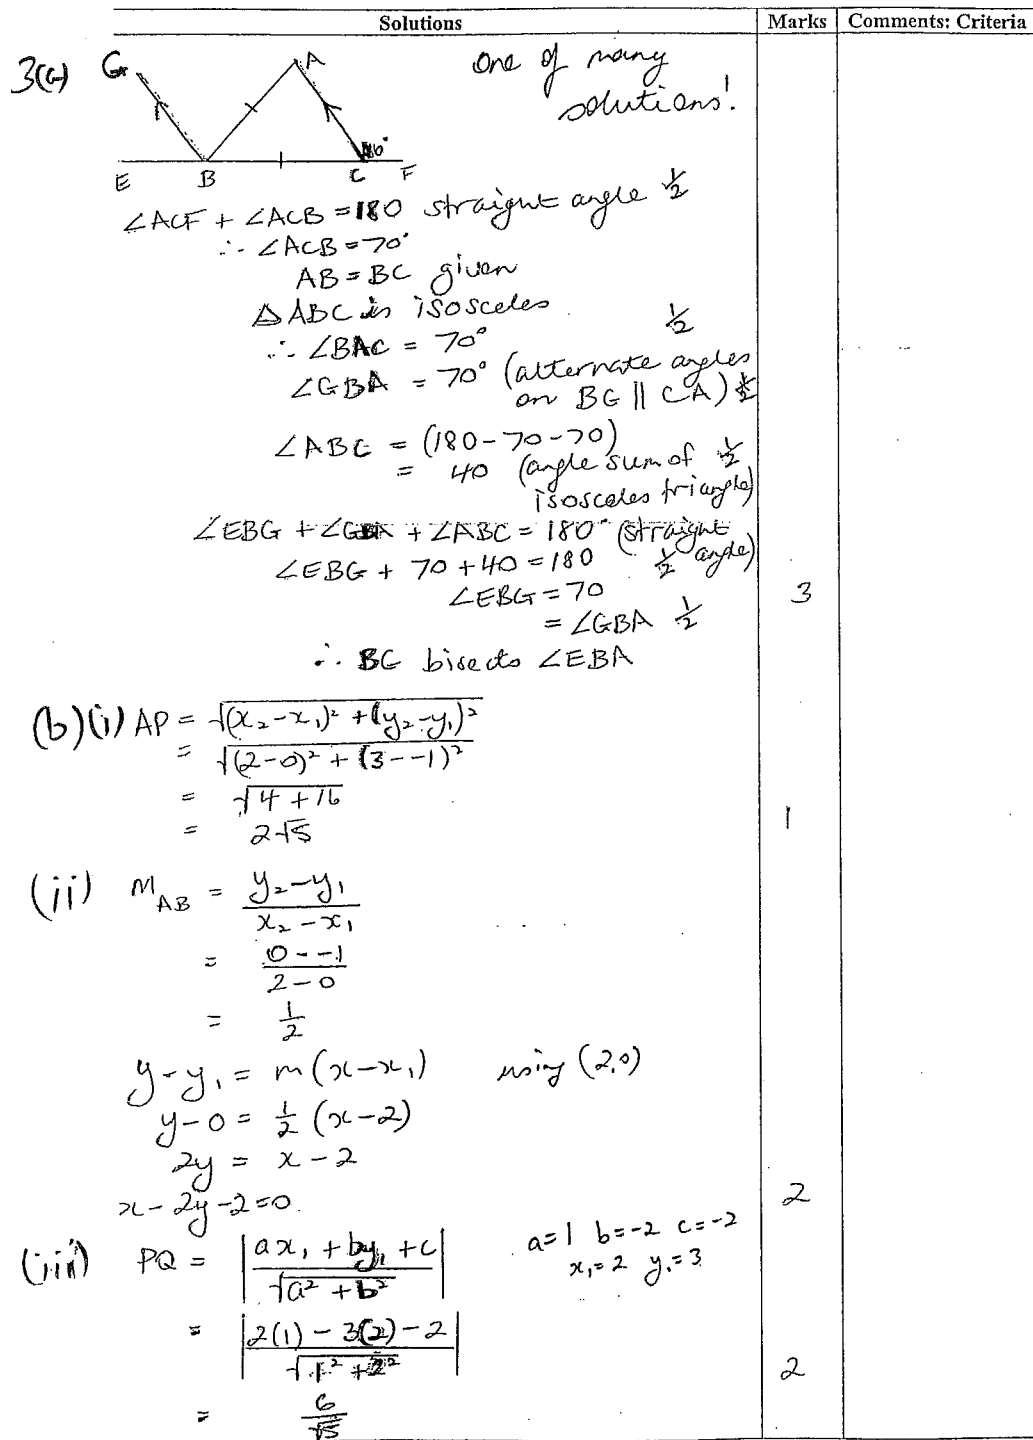 Solutions Marks Comments: Criteria
3(a) G A one of many
solutions!
E B C F
∠ACF + ∠ACB = 180 straight angle ½
∴ ∠ACB = 70°
AB = BC given
△ABC is isosceles
∴ ∠BAC = 70° ½
∠GBA = 70° (alternate angles
on BG || CA) ½
∠ABC = (180-70-70)
= 40 (angle sum of ½
isosceles triangle)
∠EBG + ∠GBA + ∠ABC = 180° (straight
∠EBG + 70 + 40 = 180 ½ angle)
∠EBG = 70 3
= ∠GBA ½
∴ BG bisects ∠EBA
(b)(i) AP = √((x₂-x₁)² + (y₂-y₁)²)
= √((2-0)² + (3--1)²)
= √(4+16)
= 2√5 1
(ii) m_AB = (y₂-y₁)/(x₂-x₁)
= (0--1)/(2-0)
= 1/2
y-y₁ = m(x-x₁) using (2,0)
y-0 = ½(x-2)
2y = x-2
x-2y-2=0. 2
(iii) PQ = |(ax₁+by₁+c)/√(a²+b²)| a=1 b=-2 c=-2
x₁=2 y₁=3
= |(2(1)-3(2)-2)/√(1²+2²)| 2
= 6/√5